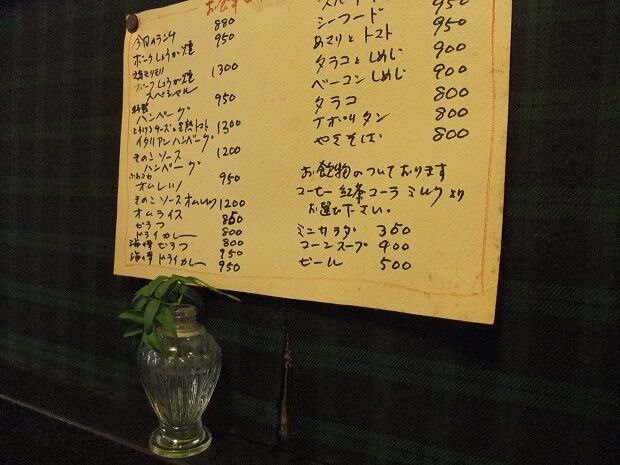 お食事
今日のランチ 880
ポークしょうが焼 950
ポークしょうが焼
スペシャル 1300
特製
ハンバーグ 950
とろけるチーズと完熟トマト
イタリアンハンバーグ 1300
きのこソース
ハンバーグ 1200
ふわふわ
オムレツ 950
きのこソースオムレツ 1200
オムライス 850
ピラフ 800
ドライカレー 800
海の幸ピラフ 950
海の幸ドライカレー 950
950
シーフード 950
あさりとトマト 950
タラコとしめじ 900
ベーコンしめじ 900
タラコ 800
ナポリタン 800
やきそば 800
お飲物のついております
コーヒー 紅茶 コーラ ミルクより
お選び下さい。
ミニサラダ 350
コーンスープ 400
ビール 500